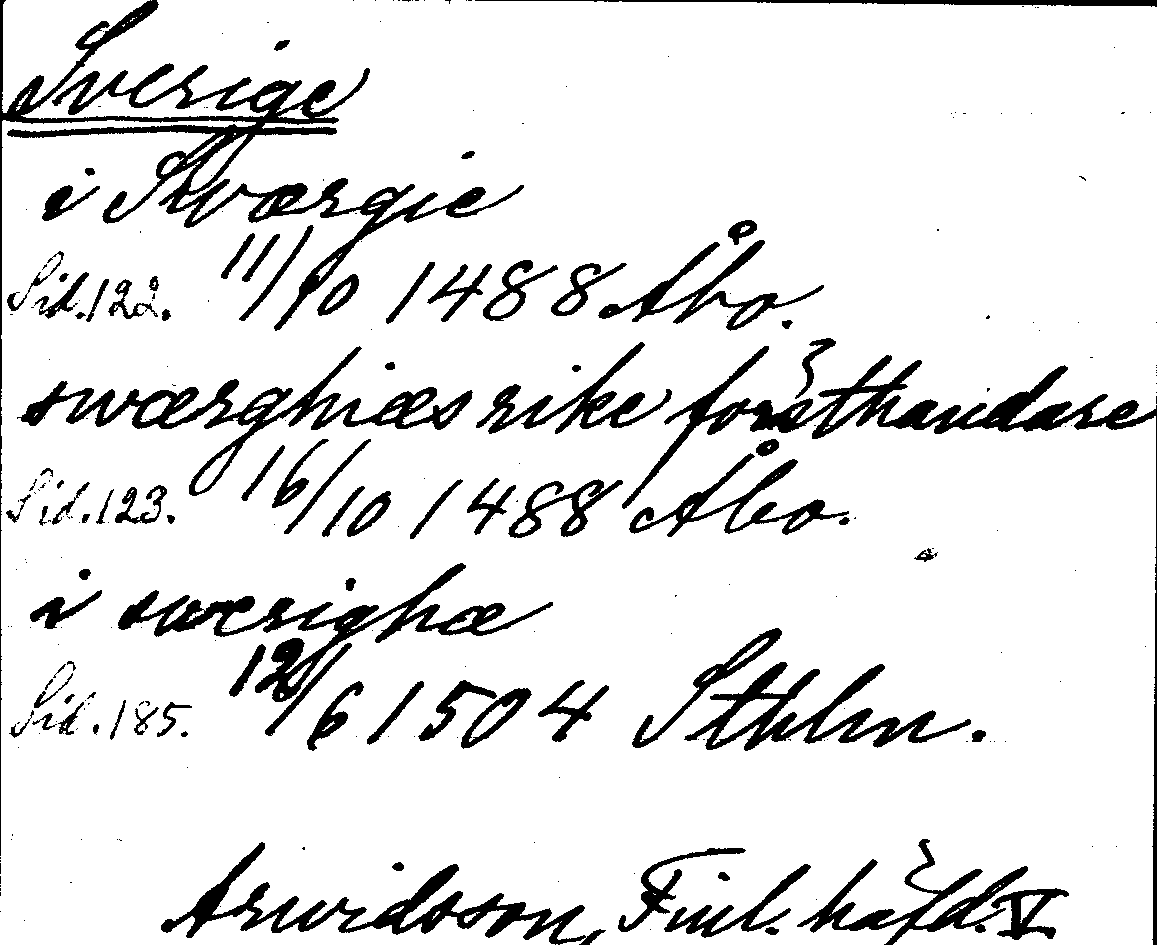 Sverige
i Swærgie
Sid. 122. 11/10 1488 Åbo.
swærghiæs rike forsthandare
Sid. 123. 16/10 1488 Åbo.
i swerighæ
Sid. 185. 12/6 1504 Sthlm.
Arwidsson, Finl. häfd. V.